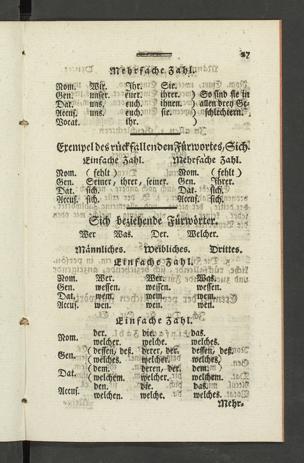 27
Mehrfache Zahl.
Nom. Wir. Ihr. Sie.
Gen. unser. euer. ihrer. ) So sind sie in
Dat. uns, euch. ihnen. ) allen drey Ge-
Accus. uns. euch. sie. ) schlechtern.
Vocat. ihr. )
Exempel des rückfallenden Fürwortes, Sich.
Einfache Zahl. Mehrfache Zahl.
Nom. ( fehlt ) Nom. ( fehlt )
Gen. Seiner, ihrer, seiner. Gen. Ihrer.
Dat. sich. Dat. sich.
Accus. sich. Accus. sich.
Sich beziehende Fürwörter.
Wer Was. Der. Welcher.
Männliches. Weibliches. Drittes.
Einfache Zahl.
Nom. Wer. Wer. Was.
Gen. wessen. wessen. wessen.
Dat. wem. wem. wem.
Accus. wen. wen. wen.
Einfache Zahl.
der. die. das.
Nom. welcher. welche. welches.
( dessen, des. derer, der. dessen, des.
Gen. ( welches. welcher. welches.
( dem. deren, der. dem.
Dat. ( welchem. welcher. welchem.
den. die. das.
Accus. welchen. welche. welches.
Mehr-